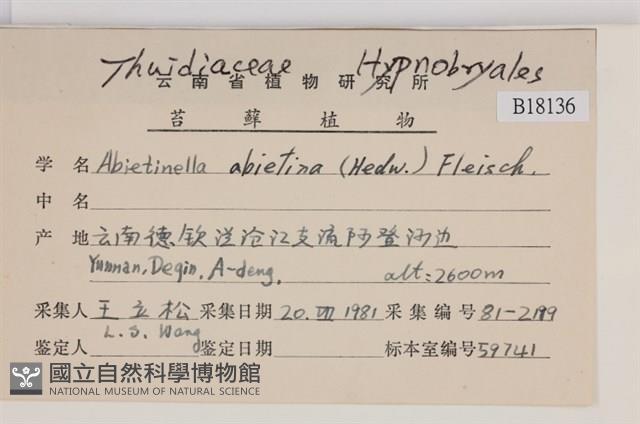 Thuidiaceae Hypnobryales
云南省植物研究所
B18136
苔藓植物
学名 Abietinella abietina (Hedw.) Fleisch.
中名
产地 云南德钦 沧江支流阿登河边
Yunnan, Deqin, A-deng. alt: 2600m
采集人 王立松 采集日期 20. VII 1981 采集编号 81-2199
L. S. Wang
鉴定人 鉴定日期 标本室编号 59741
國立自然科學博物館
NATIONAL MUSEUM OF NATURAL SCIENCE